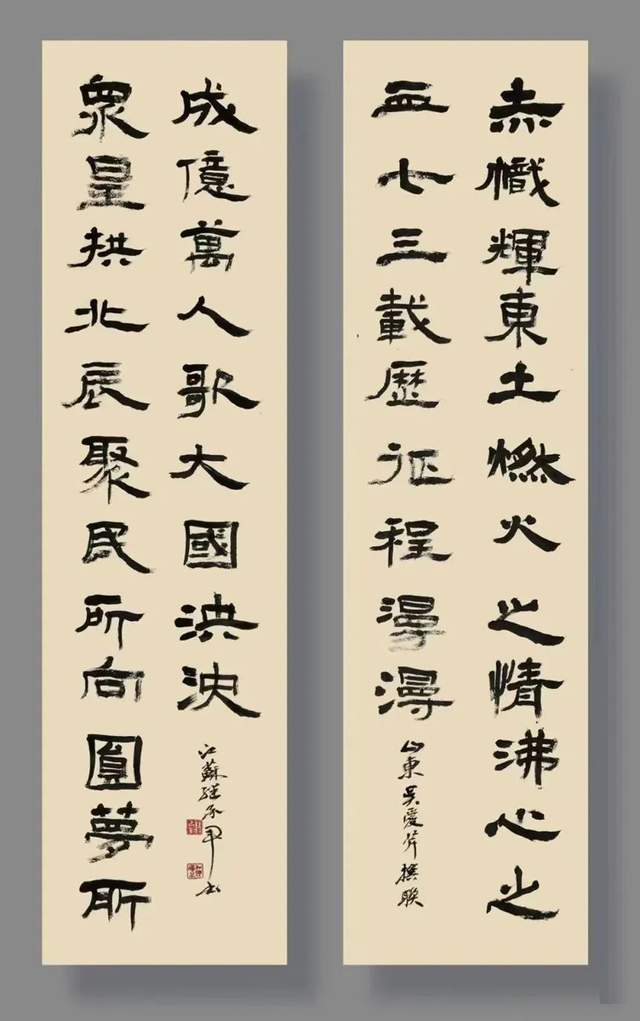 赤幟輝東土燃火之情沸心之
血七三載歷征程漫漫
山東吳愛芹撰聯
眾星拱北辰聚民所向圓夢所
成億萬人歌大國泱泱
江蘇 書